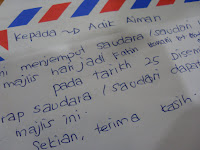 Kepada → Adik Aiman
ni menjemput saudara / saudari
majlis hari jadi Fatin
pada tarikh 25 Disem
rap saudara / saudari dapat
majlis ini.
Sekian, terima kasih